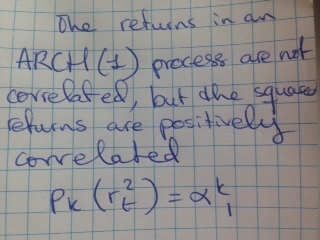 The returns in an
ARCH(1) process are not
correlated, but the squared
returns are positively
correlated
ρk(r²t) = α₁ᵏ